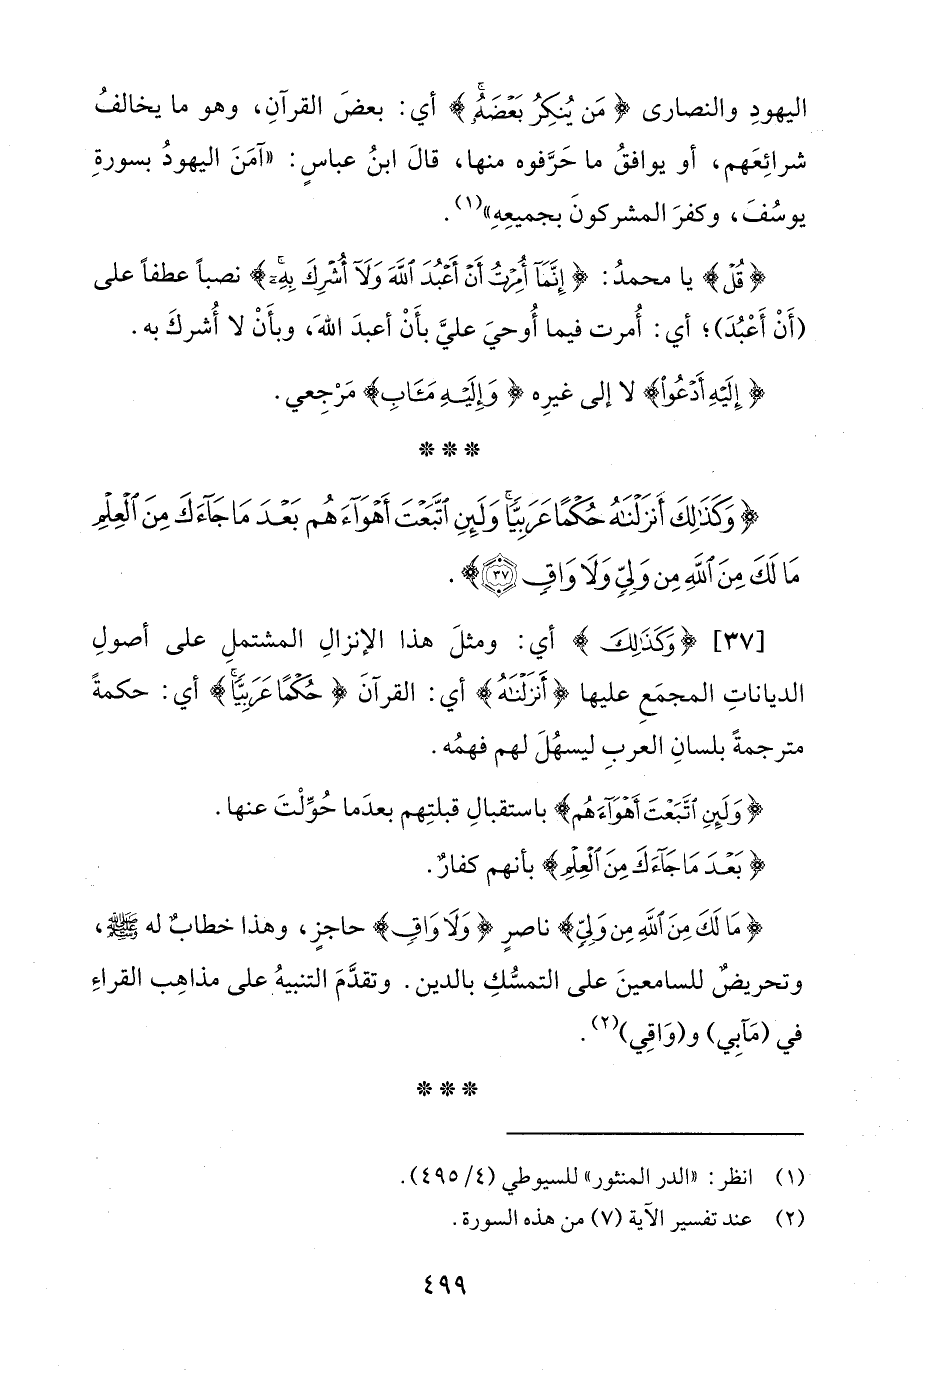 اليهودِ والنصارى ﴿ مَن يُنكِرُ بَعْضَهُۥۚ ﴾ أي: بعضَ القرآنِ، وهو ما يخالفُ
شرائِعَهم، أو يوافقُ ما حَرَّفوه منها، قالَ ابنُ عباسٍ: «آمَنَ اليهودُ بسورةِ
يوسُفَ، وكفرَ المشركونَ بجميعِهِ»(١).
﴿ قُلْ ﴾ يا محمدُ: ﴿ إِنَّمَآ أُمِرْتُ أَنْ أَعْبُدَ ٱللَّهَ وَلَآ أُشْرِكَ بِهِۦٓۚ ﴾ نصباً عطفاً على
(أَنْ أَعْبُدَ)؛ أي: أُمرت فيما أُوحيَ عليَّ بأَنْ أعبدَ اللهَ، وبأَنْ لا أُشركَ به.
﴿ إِلَيْهِ أَدْعُوا۟ ﴾ لا إلى غيرِه ﴿ وَإِلَيْهِ مَـَٔابِ ﴾ مَرْجِعي.
* * *
﴿ وَكَذَٰلِكَ أَنزَلْنَٰهُ حُكْمًا عَرَبِيًّاۚ وَلَئِنِ ٱتَّبَعْتَ أَهْوَآءَهُم بَعْدَ مَا جَآءَكَ مِنَ ٱلْعِلْمِ
مَا لَكَ مِنَ ٱللَّهِ مِن وَلِيٍّ وَلَا وَاقٍ ٣٧ ﴾.
[٣٧] ﴿ وَكَذَٰلِكَ ﴾ أي: ومثلَ هذا الإنزالِ المشتملِ على أصولِ
الدياناتِ المجمَعِ عليها ﴿ أَنزَلْنَٰهُ ﴾ أي: القرآنَ ﴿ حُكْمًا عَرَبِيًّاۚ ﴾ أي: حكمةً
مترجمةً بلسانِ العربِ ليسهُلَ لهم فهمُه.
﴿ وَلَئِنِ ٱتَّبَعْتَ أَهْوَآءَهُم ﴾ باستقبالِ قبلتِهم بعدَما حُوِّلْتَ عنها.
﴿ بَعْدَ مَا جَآءَكَ مِنَ ٱلْعِلْمِ ﴾ بأنهم كفارٌ.
﴿ مَا لَكَ مِنَ ٱللَّهِ مِن وَلِيٍّ ﴾ ناصرٍ ﴿ وَلَا وَاقٍ ﴾ حاجزٍ، وهذا خطابٌ له ﷺ،
وتحريضٌ للسامعينَ على التمسُّكِ بالدين. وتقدَّمَ التنبيهُ على مذاهبِ القراءِ
في (مَآبِي) و(وَاقِي)(٢).
* * *
(١) انظر: «الدر المنثور» للسيوطي (٤/ ٤٩٥).
(٢) عند تفسير الآية (٧) من هذه السورة.
٤٩٩